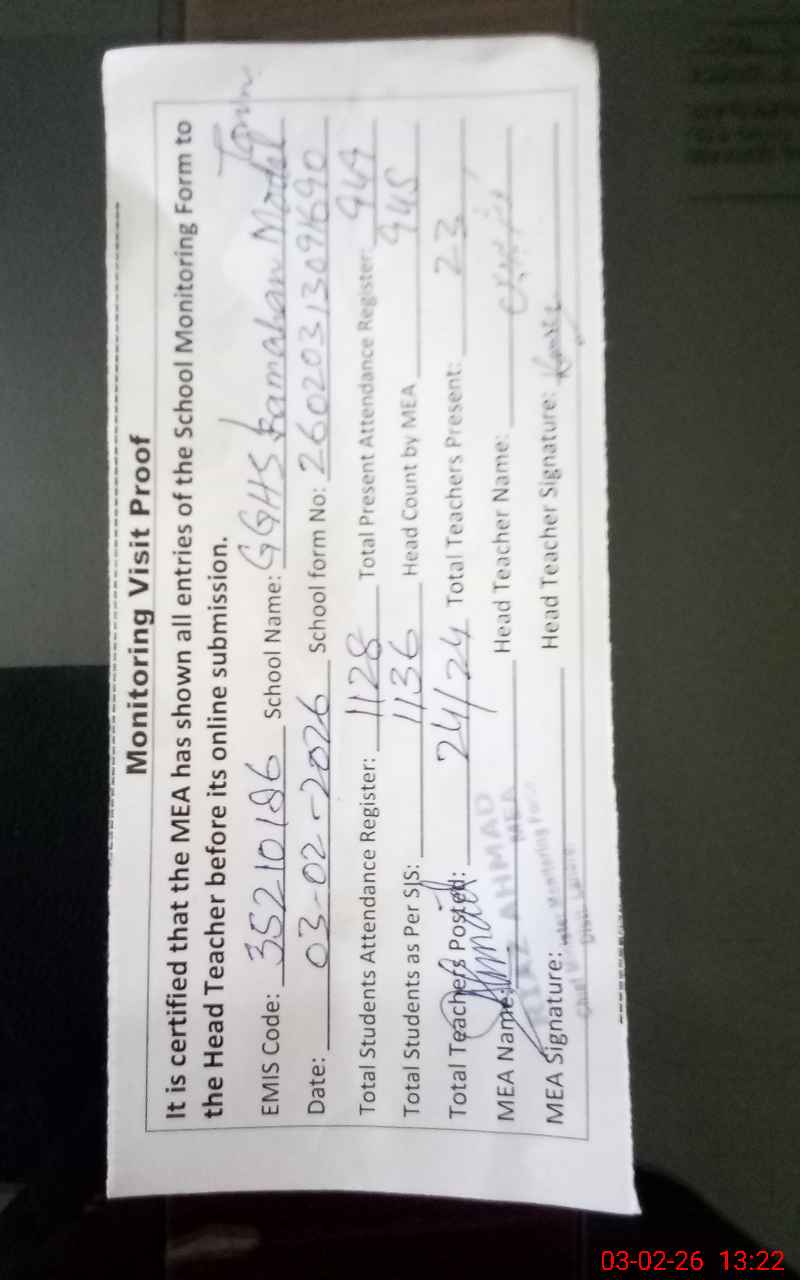 Monitoring Visit Proof
It is certified that the MEA has shown all entries of the School Monitoring Form to
the Head Teacher before its online submission.
EMIS Code: 35210186 School Name: GGHS Kamahan Model Town
Date: 03-02-2026 School form No: 26020313091690
Total Students Attendance Register: 1128 Total Present Attendance Register: 949
Total Students as Per SIS: 1136 Head Count by MEA 945
Total Teachers Posted: 24/24 Total Teachers Present: 23
MEA Name: RIAZ AHMAD Head Teacher Name:
MEA
MEA Signature: Head Teacher Signature:
Monitoring
03-02-26 13:22